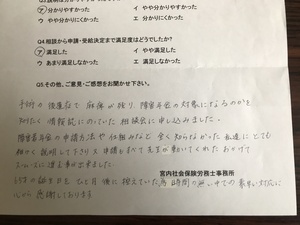 ア 分かりやすかった イ やや分かりやすかった
ウ やや分かりにくかった エ 分かりにくかった
Q4.相談から申請・受給決定まで満足度はどうでしたか?
ア 満足した イ やや満足した
ウ あまり満足しなかった エ 満足しなかった
Q5.その他、ご意見・ご感想をお聞かせ下さい。
手術の後遺症で麻痺が残り、障害年金の対象になるのかを
知りたく情報誌にのっていた相談会に申し込みました。
障害者年金の申請方法や仕組みなど全く知らなかった私達にとても
細かく説明して下さり又申請もすべて先生が動いてくれたおかげで
スムーズに進む事が出来ました。
65才の誕生日をひと月後に控えていた為時間の無い中での素早い対応に
心から感謝しております
宮内社会保険労務士事務所